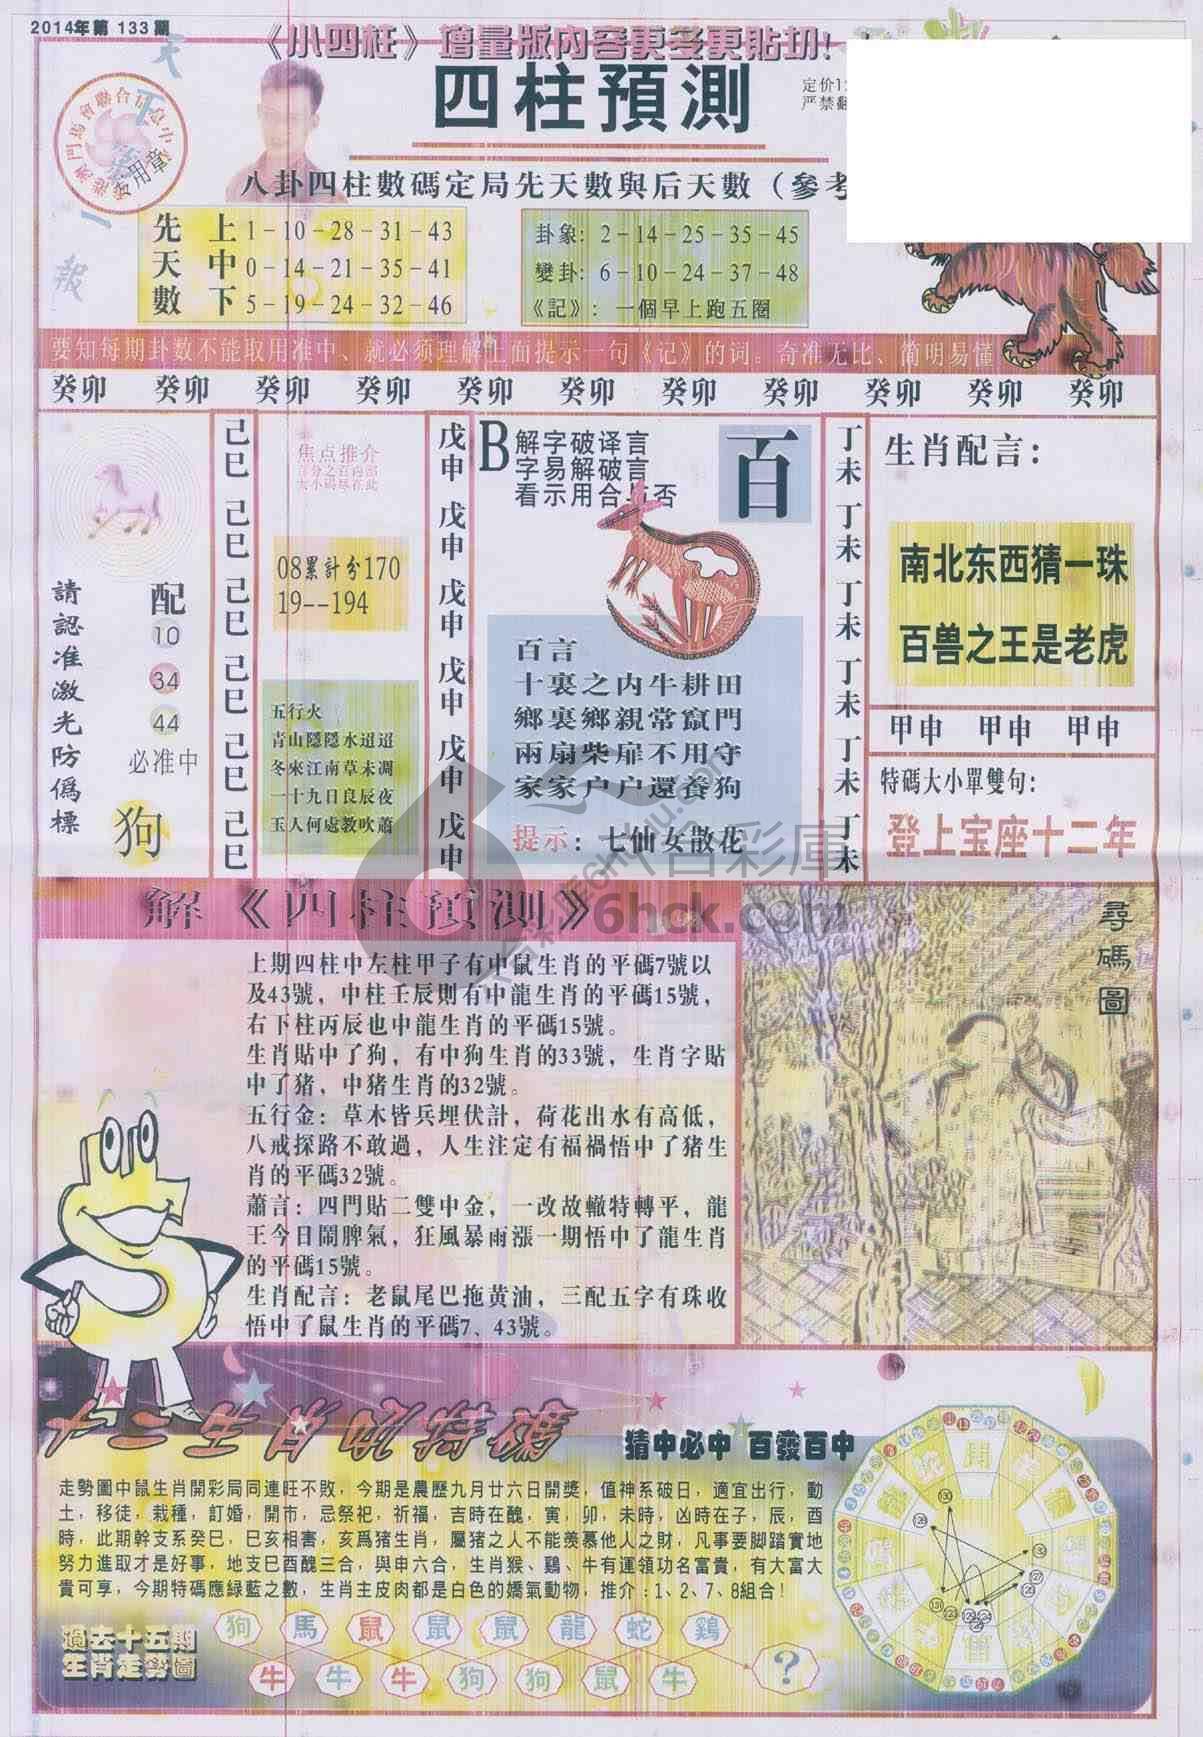 2014年第 133 期
《小四柱》增量版內容更多更貼切!
四柱預測
定价1
严禁翻
天下第一報
專用章
八卦四柱數碼定局先天數與后天數（參考
先天數
上 1－10－28－31－43
中 0－14－21－35－41
下 5－19－24－32－46
卦象: 2－14－25－35－45
變卦: 6－10－24－37－48
《記》: 一個早上跑五圈
要知每期卦数不能取用准中、就必须理解上面提示一句《记》的词。奇准无比、简明易懂
癸卯 癸卯 癸卯 癸卯 癸卯 癸卯 癸卯 癸卯 癸卯 癸卯 癸卯
請認准激光防僞標
配
10
34
44
必准中
狗
己巳 己巳 己巳 己巳 己巳 己巳
焦点推介
百分之百内部
大小码尽在此
08累計分170
19--194
五行火
青山隱隱水迢迢
冬來江南草未凋
一十九日良辰夜
玉人何處教吹蕭
戊申 戊申 戊申 戊申 戊申 戊申
B
解字破译言
字易解破言
看示用合与否
百
百言
十裏之内牛耕田
鄉裏鄉親常竄門
兩扇柴扉不用守
家家户户還養狗
提示: 七仙女散花
丁未 丁未 丁未 丁未 丁未 丁未
生肖配言:
南北东西猜一珠
百兽之王是老虎
甲申 甲申 甲申
特碼大小單雙句:
登上宝座十二年
六合彩庫
6hck.com
解《四柱預測》
上期四柱中左柱甲子有中鼠生肖的平碼7號以
及43號，中柱壬辰則有中龍生肖的平碼15號，
右下柱丙辰也中龍生肖的平碼15號。
生肖貼中了狗，有中狗生肖的33號，生肖字貼
中了猪，中猪生肖的32號。
五行金: 草木皆兵埋伏計，荷花出水有高低，
八戒探路不敢過，人生注定有福禍悟中了猪生
肖的平碼32號。
蕭言: 四門貼二雙中金，一改故轍特轉平，龍
王今日鬧脾氣，狂風暴雨漲一期悟中了龍生肖
的平碼15號。
生肖配言: 老鼠尾巴拖黄油，三配五字有珠收
悟中了鼠生肖的平碼7、43號。
尋碼圖
猜中必中 百發百中
走勢圖中鼠生肖開彩局同連旺不敗，今期是農歷九月廿六日開獎，值神系破日，適宜出行，動
土，移徒，栽種，訂婚，開市，忌祭祀，祈福，吉時在醜，寅，卯，未時，凶時在子，辰，酉
時，此期幹支系癸巳，巳亥相害，亥爲猪生肖，屬猪之人不能羨慕他人之財，凡事要脚踏實地
努力進取才是好事，地支巳酉醜三合，與申六合，生肖猴、鷄、牛有運領功名富貴，有大富大
貴可享，今期特碼應緑藍之數，生肖主皮肉都是白色的嬌氣動物，推介:1、2、7、8組合!
過去十五期
生肖走勢圖
狗 馬 鼠 鼠 鼠 龍 蛇 鷄
牛 牛 牛 狗 狗 鼠 牛 ?